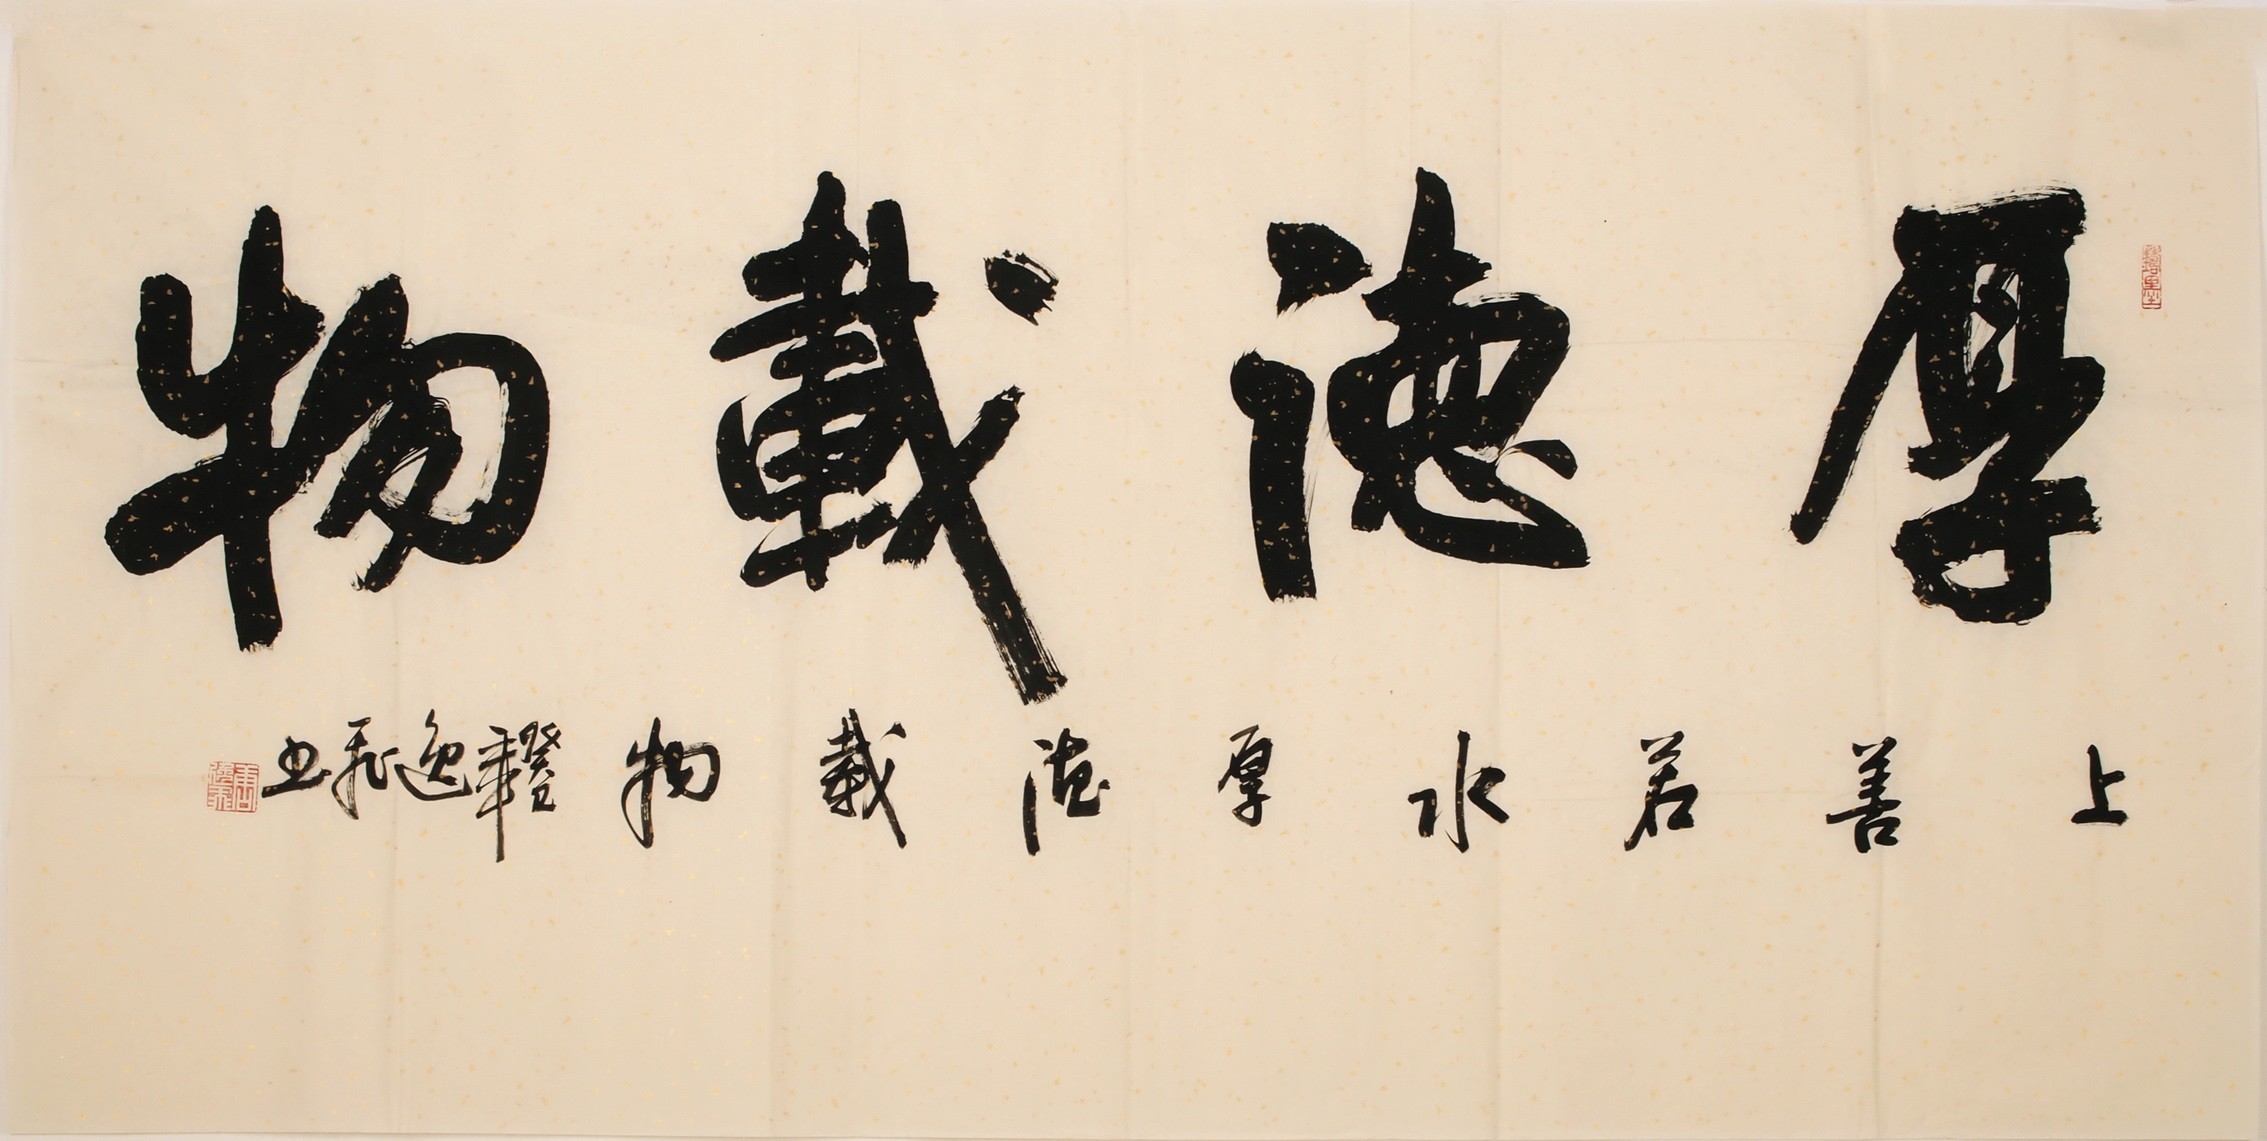 厚德載物
上善若水厚德載物
書